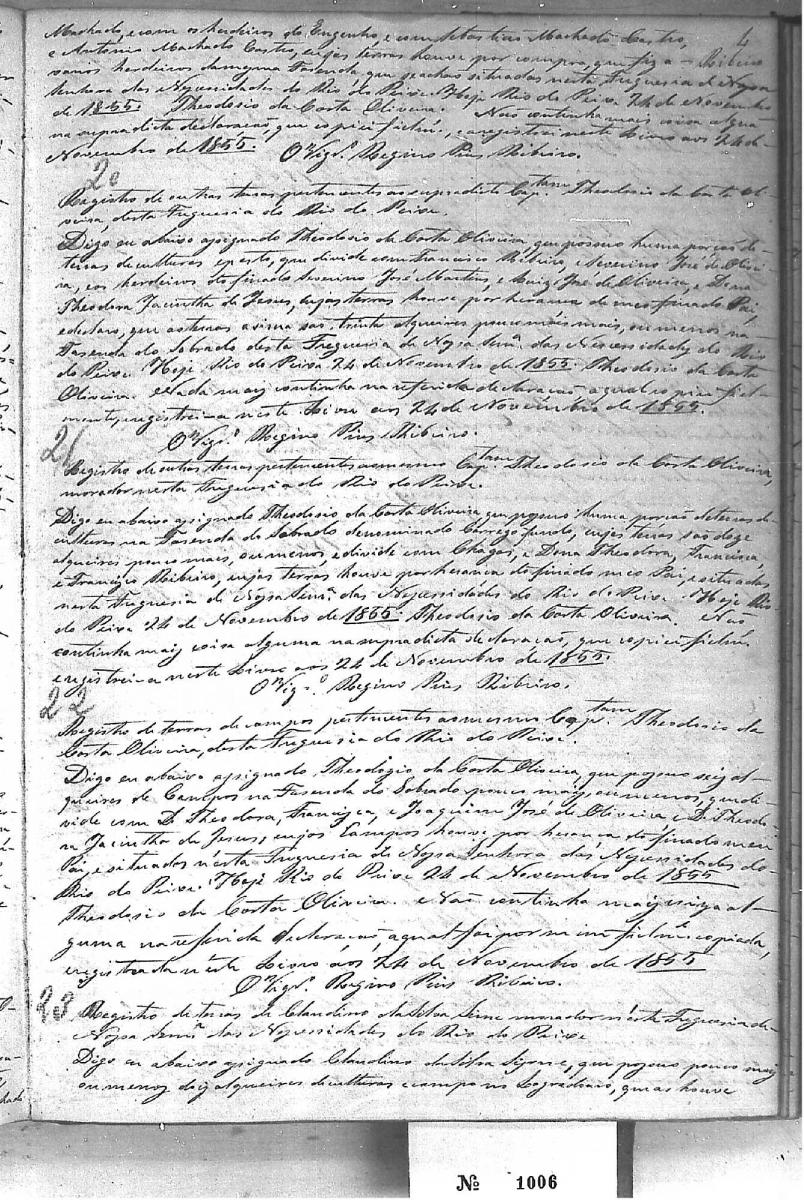 4
Machado, e com os herdeiros do Engenho, e com Sebastião Machado Castro,
e Antonio Machado Castro, cujas terras houve por compra, que fiz a Ribeiro
varios herdeiros da mesma Fazenda, que se achão situadas nesta Freguesia de Nossa
Senhora das Necessidades do Rio do Peixe. Hoje Rio do Peixe 24 de Novembro
de 1855. Theodosio da Costa Oliveira. Nao continha mais coisa alguã
na supradicta declaracaõ, que copiei fielmẽ, e a registrei neste Livro aos 24 de
Novembro de 1855.
O Vigr.º Regino Pius Ribeiro.
20
Registro de outras terras pertencentes ao supradicto Cap.tam Theodosio da Costa Oli-
veira, desta Freguesia do Rio do Peixe.
Digo eu abaixo assignado Theodosio da Costa Oliveira, que possuo huma porçaõ de
terras de culturas, que divide com Francisco Ribeiro, e Severino José de Olivei-
ra, e os herdeiros do finado Severino José Martins, e Luiz José de Oliveira, e Dona
Theodora Jacintha de Jesus, cujas terras houve por herança de meo finado Pai,
e declaro, que as terras acima saõ trinta alqueires pouco mais, ou menos na
Fasenda do Sobrado desta Freguesia de Nossa Senr.ª das Necessidades do Rio
do Peixe. Hoje Rio do Peixe 24 de Novembro de 1855. Theodosio da Costa
Oliveira. Nada mais continha na referida declaracaõ a qual copiei fiel-
mente, e registrei-a neste Livro aos 24 de Novembro de 1855.
O Vigr.º Regino Pius Ribeiro.
21
Registro de outras terras pertencentes ao mesmo Cap.tam Theodosio da Costa Oliveira,
morador nesta Freguesia do Rio do Peixe.
Digo eu abaixo assignado Theodosio da Costa Oliveira que possuo huma porçaõ de terras de
culturas na Fasenda do Sobrado denominado Corrego fundo, cujas terras saõ doze
alqueires pouco mais, ou menos, e divide com Chagas, e Dona Theodora, Francisca,
e Francisco Ribeiro, cujas terras houve por herança do finado meo Pai, e situadas
nesta Freguesia de Nossa Senr.ª das Necessidades do Rio do Peixe. Hoje Rio
do Peixe 24 de Novembro de 1855. Theodosio da Costa Oliveira. Naõ
continha mais coisa alguma na supradicta declaracaõ, que copiei fielmẽ,
e registrei-a neste Livro aos 24 de Novembro de 1855.
O Vigr.º Regino Pius Ribeiro.
22
Registro de terras de campos pertencentes ao mesmo Cap.tam Theodosio da
Costa Oliveira, desta Freguesia do Rio do Peixe.
Digo eu abaixo assignado Theodozio da Costa Oliveira, que possuo seis al-
queires de Campos na Fasenda do Sobrado pouco mais, ou menos, que di-
vide com D. Theodora, Francisca, e Joaquim José de Oliveira e D. Theodo-
ra Jacintha de Jesus, cujos Campos houve por herança do finado meu
Pai, e situados nésta Freguesia de Nossa Senhora das Necessidades do
Rio do Peixe. Hoje Rio do Peixe 24 de Novembro de 1855
Theodosio da Costa Oliveira. e Naõ continha mais coisa al-
guma na referida declaracaõ, a qual foi por mim fielmẽ copiada,
e registrada néste Livro aos 24 de Novembro de 1855
O Vigr.º Regino Pius Ribeiro.
23
Registro de terras de Claudino da Silva Leme morador n'ésta Freguesia de
Nossa Senr.ª das Necessidades do Rio do Peixe
Digo eu abaixo assignado Claudino da Silva, que possuo pouco mais
ou menos dez alqueires de culturas e campo no Logradouro, que as houve
Nº 1006